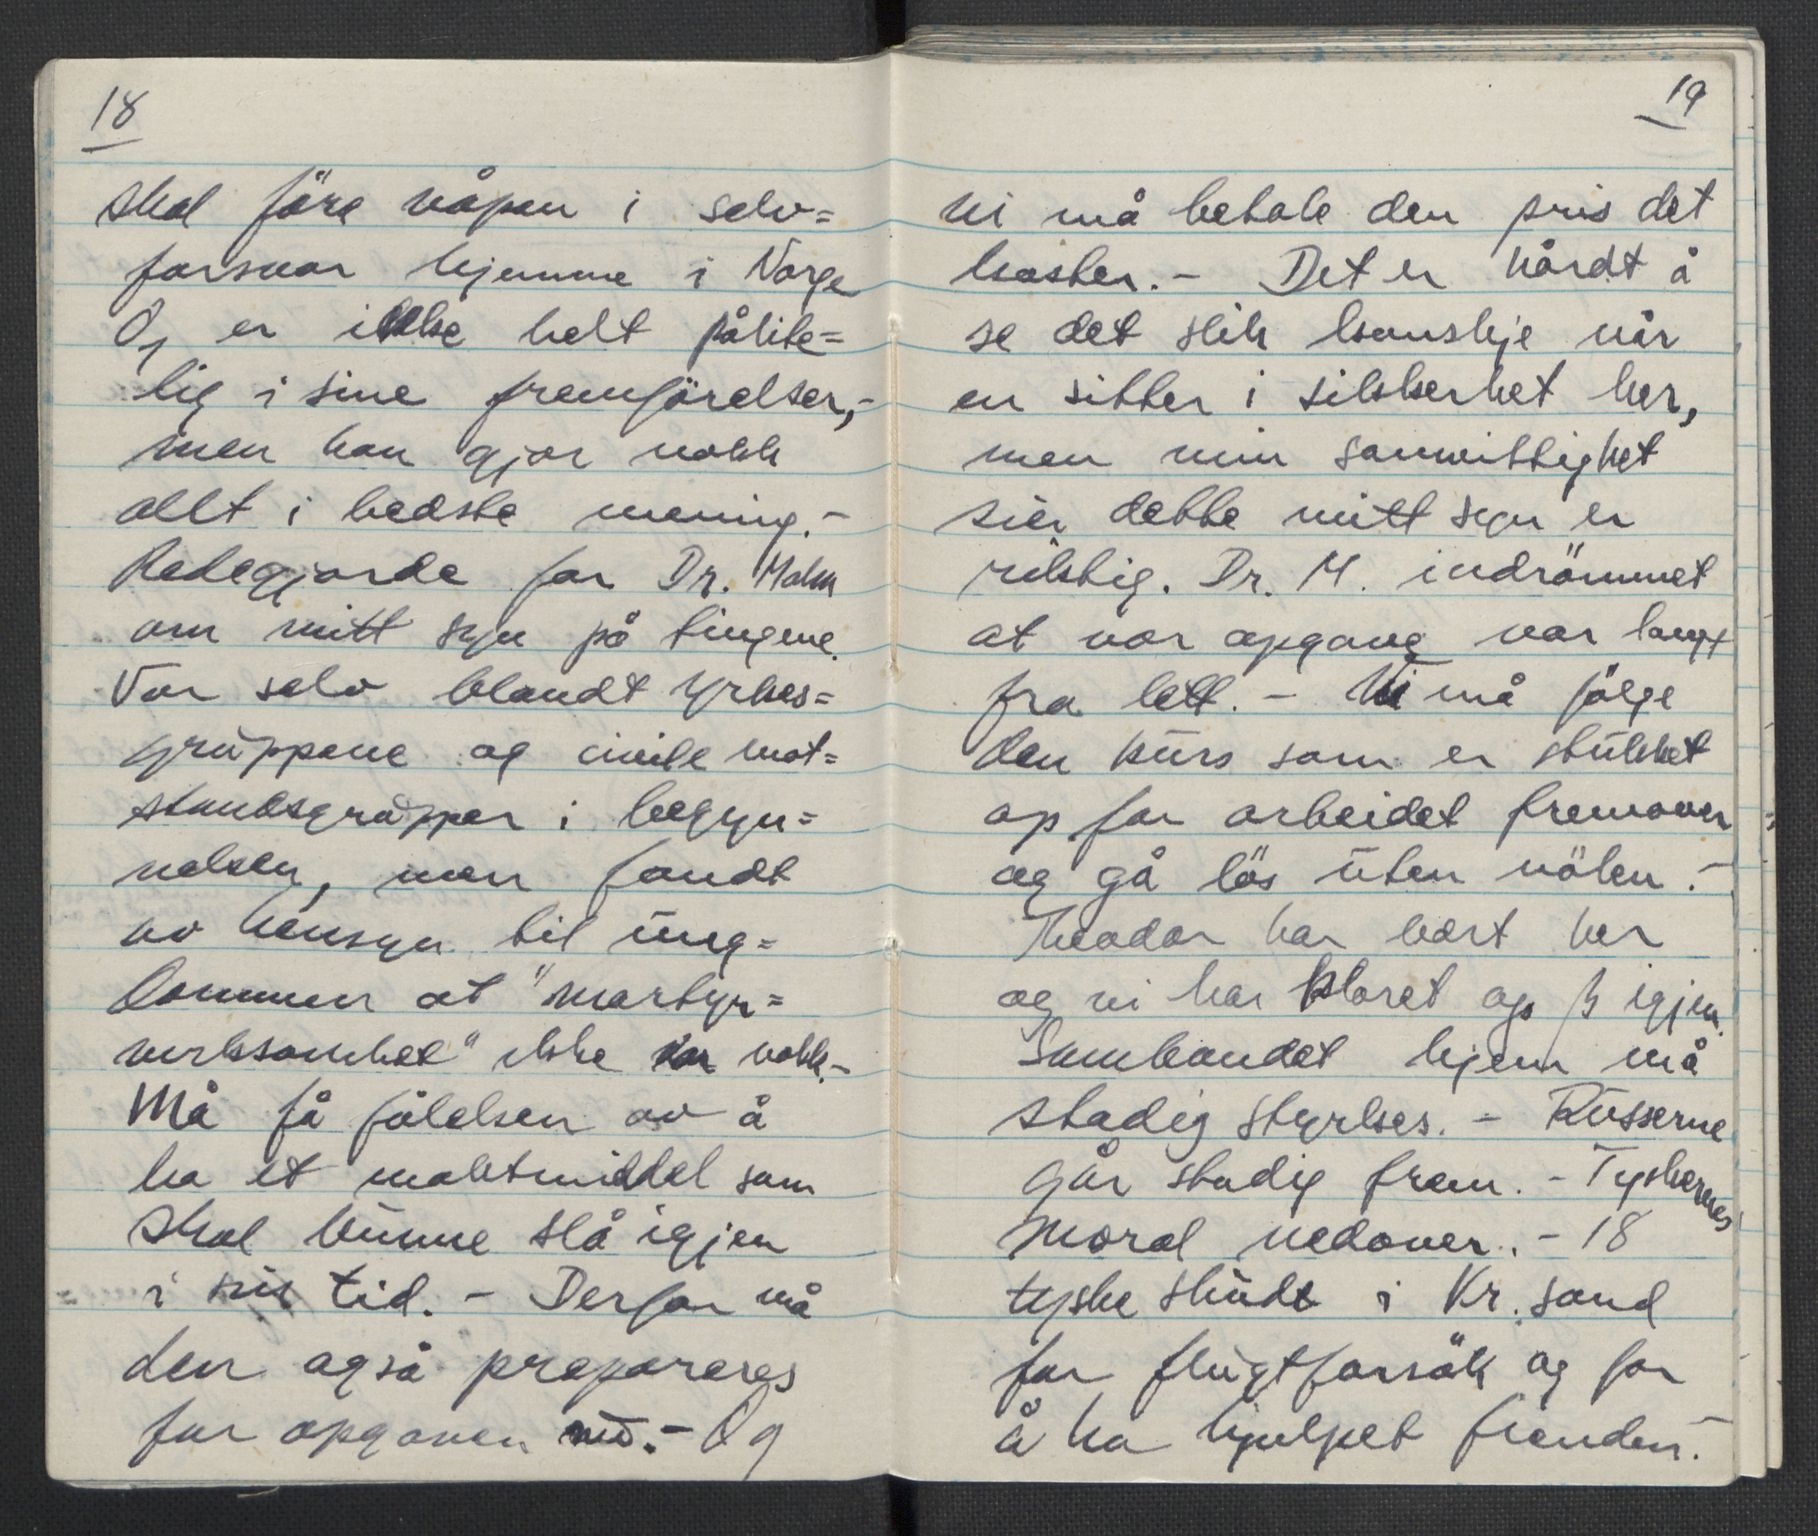 18
skal före våpen i selv=
forsvar hjemme i Norge
Og er ikke helt pålite=
lig i sine fremförelser,-
men han gjör nokk
allt i bedste mening.-
Redegjorde for Dr. Malm
om mitt syn på tingene.
Var selv blandt yrkes=
gruppene og civile mot=
standsgrupper i begyn=
nelsen, men fandt
av hensyn til ung=
dommen at "martyr=
virksomhet" ikke var nokk.-
Må få fölelsen av å
ha et maktmiddel som
skal kunne slå igjen
i sin tid. - Derfor må
den også prepareres
for opgaven nu.- Og
19
vi må betale den pris det
koster. - Det er hårdt å
se det slik kanskje når
en sitter i sikkerhet her,
men min samvittighet
sier dette mitt syn er
riktig. Dr. M. indrömmet
at vor opgave var langt
fra lett. - Vi må fölge
den kurs som er stukket
op for arbeidet fremover
og gå lös uten nölen.-
Theodor har vært her
og vi har klaret op igjen.
Sambandet hjem må
stadig styrkes. - Russerne
går stadig frem. - Tyskernes
moral nedover. - 18
tyske skudt i Kr.sand
for flugtforsök og for
å ha hjulpet fienden.-